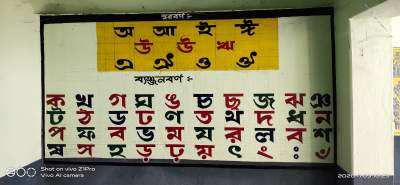 স্বরবর্ণ
অ আ ই ঈ
উ ঊ ঋ
এ ঐ ও ঔ
ব্যঞ্জনবর্ণ
ক খ গ ঘ ঙ চ ছ জ ঝ ঞ
ট ঠ ড ঢ ণ ত থ দ ধ ন
প ফ ব ভ ম য র ল ব শ
ষ স হ ড় ঢ় য় ৎ ং ঃ ঁ
Shot on vivo Z1Pro
Vivo AI camera